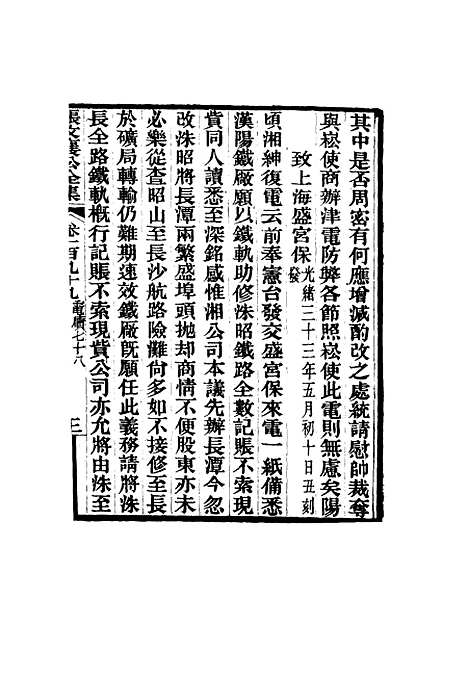 其中是否周密有何應增減酌改之處統請慰帥裁奪
與崧使商辦津電防弊各節照崧使此電則無慮矣陽
致上海盛宮保光緒三十三年五月初十日丑刻發
頃湘紳復電云前奉憲台發交盛宮保來電一紙備悉
漢陽鐵厰願以鐵軌助修洙昭鐵路全數記賬不索現
貲同人讀悉至深銘感惟湘公司本議先辦長潭今忽
改洙昭將長潭兩繁盛埠頭拋却商情不便股東亦未
必樂從查昭山至長沙航路險灘尙多如不接修至長
於礦局轉輸仍難期速效鐵厰旣願任此義務請將洙
長全路鐵軌槪行記賬不索現貲公司亦允將由洙至
張文襄公全集 卷一百九十九 電牘七十八 三